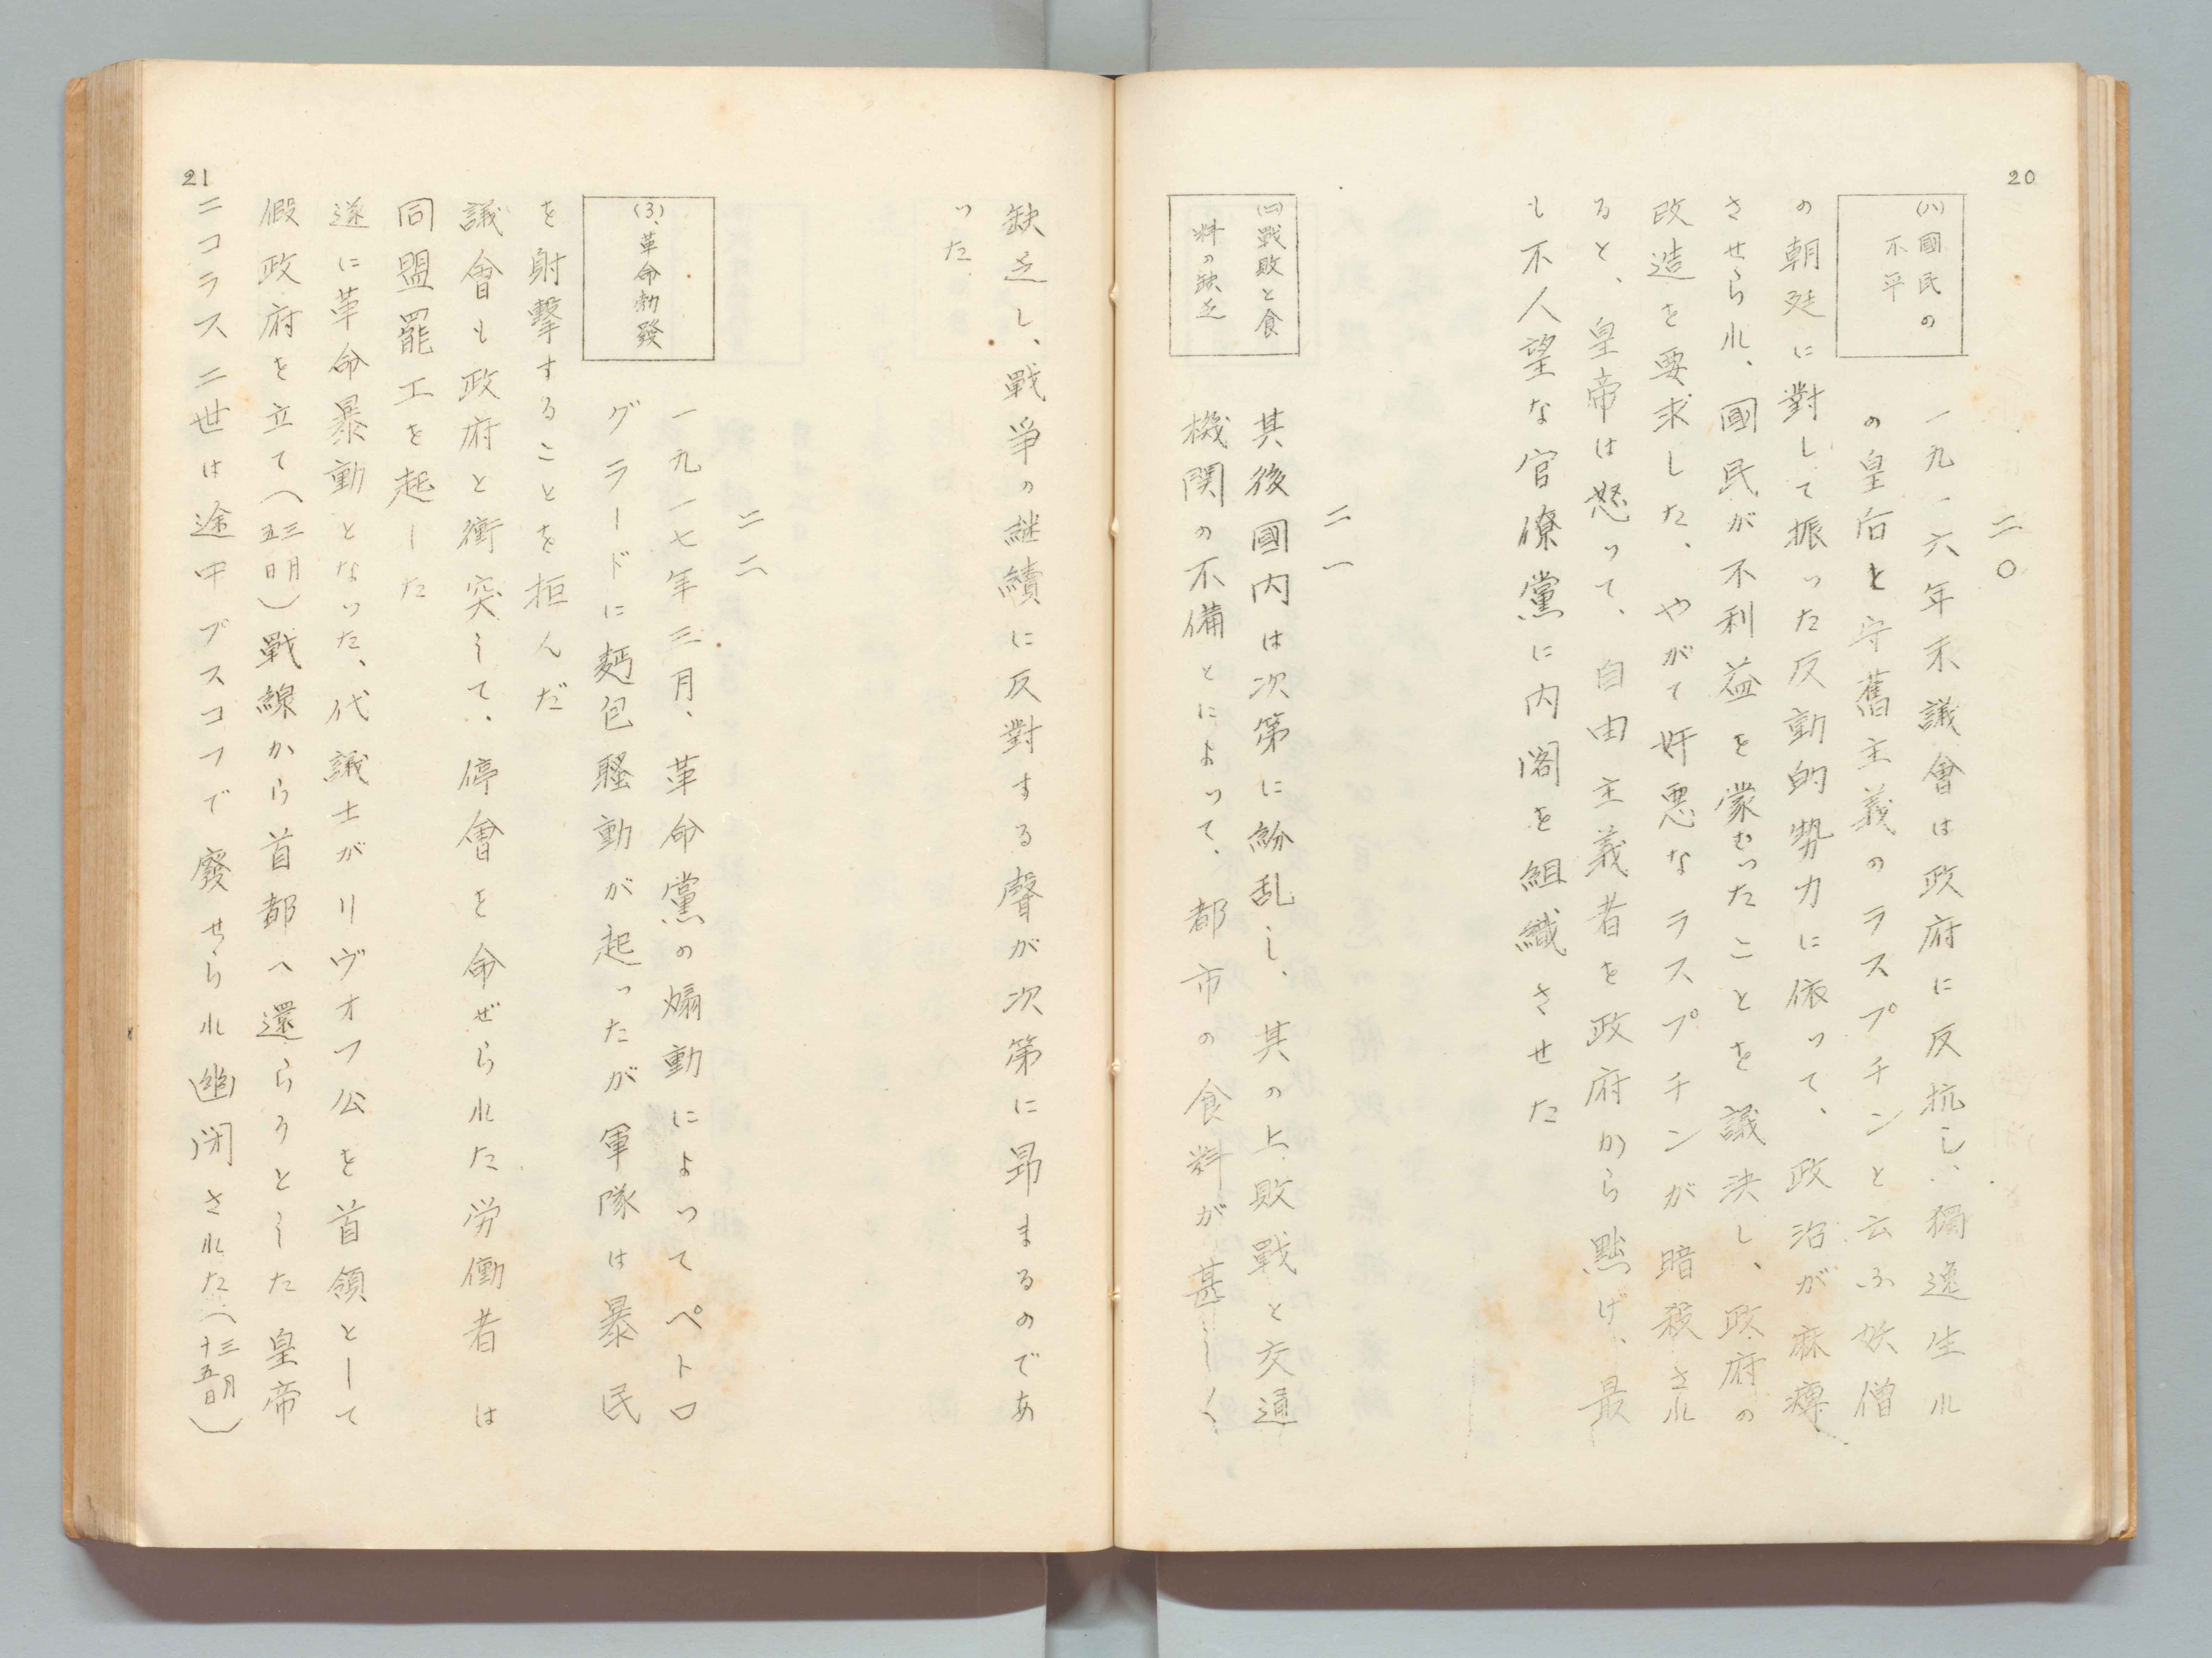 20
二〇
(ハ)國民の
不平
一九一六年末議會は政府に反抗し、獨逸生れ
の皇后と守舊主義のラスプチンと云ふ妖僧
の朝廷に對して振った反動的勢力に依って、政治が麻痺
させられ、國民が不利益を蒙むったことを議決し、政府の
改造を要求した、やがて奸悪なラスプチンが暗殺され
ると、皇帝は怒って、自由主義者を政府から黜げ、最
も不人望な官僚黨に内閣を組織させた
二一
(二)戰敗と食
料の缺乏
其後國内は次第に紛乱し、其の上敗戰と交通
機関の不備とによって、都市の食料が甚しく
缺乏し、戰爭の継續に反對する聲が次第に昴まるのであ
った
二二
(3)、革命勃發
一九一七年三月、革命黨の煽動によってペトロ
グラードに麺包騒動が起ったが軍隊は暴民
を射撃することを拒んだ
議會も政府と衝突して、停會を命ぜられた労働者は
同盟罷工を起した
遂に革命暴動となった、代議士がリヴオフ公を首領として
假政府を立て(三月五日)戰線から首都へ還らうとした皇帝
ニコラス二世は途中プスコフで廢せられ幽閉された(三月十五日)
21